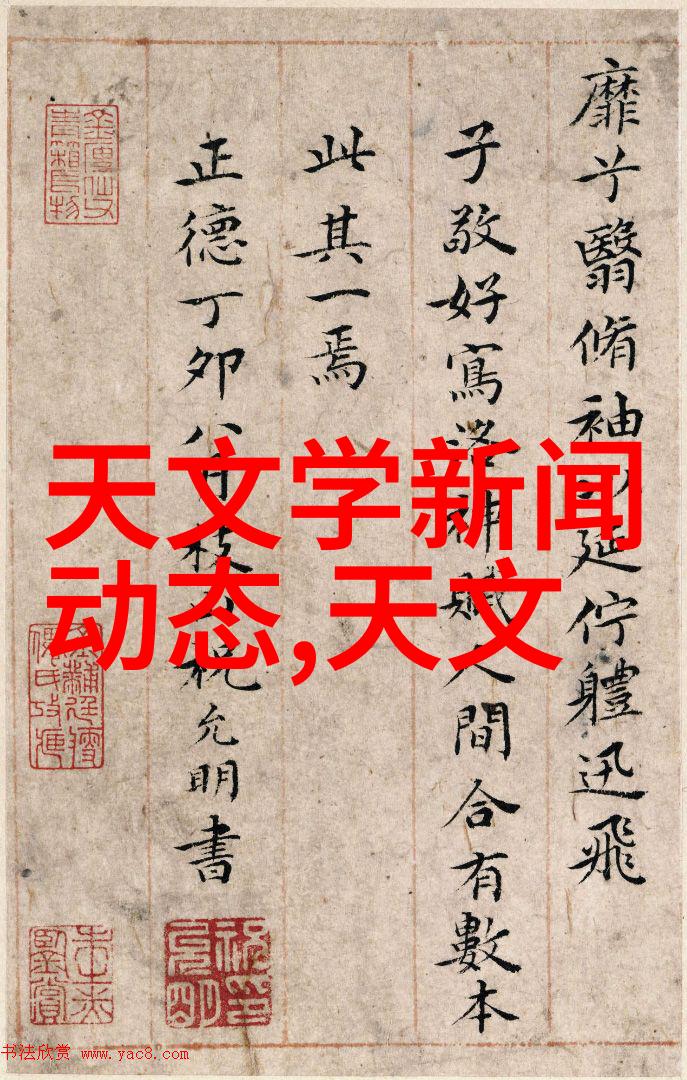 靡兮翳脩袖以延佇體迅飛
子敬好寫洛神賦人間合有數本
此其一焉
正德丁卯八月枝山祝允明書
天文学新闻
动态,天文
书法欣赏 www.yac8.com